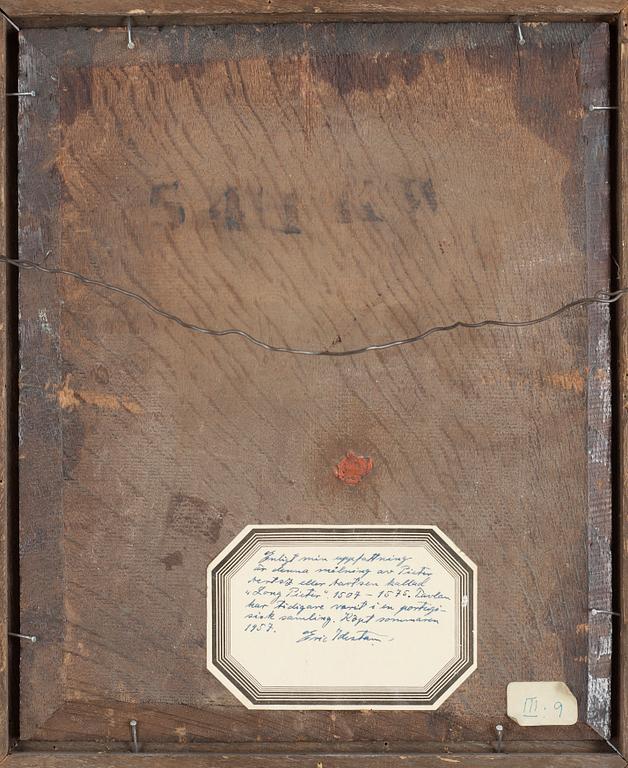 Enligt min uppfattning
är denna målning av Pieter
Aertsz eller Aartsen kallad
"Long Pieter" 1507 - 1575. Tavlan
har tidigare varit i en portugi-
sisk samling. Köpt sommaren
1957.
Eric
III: 9